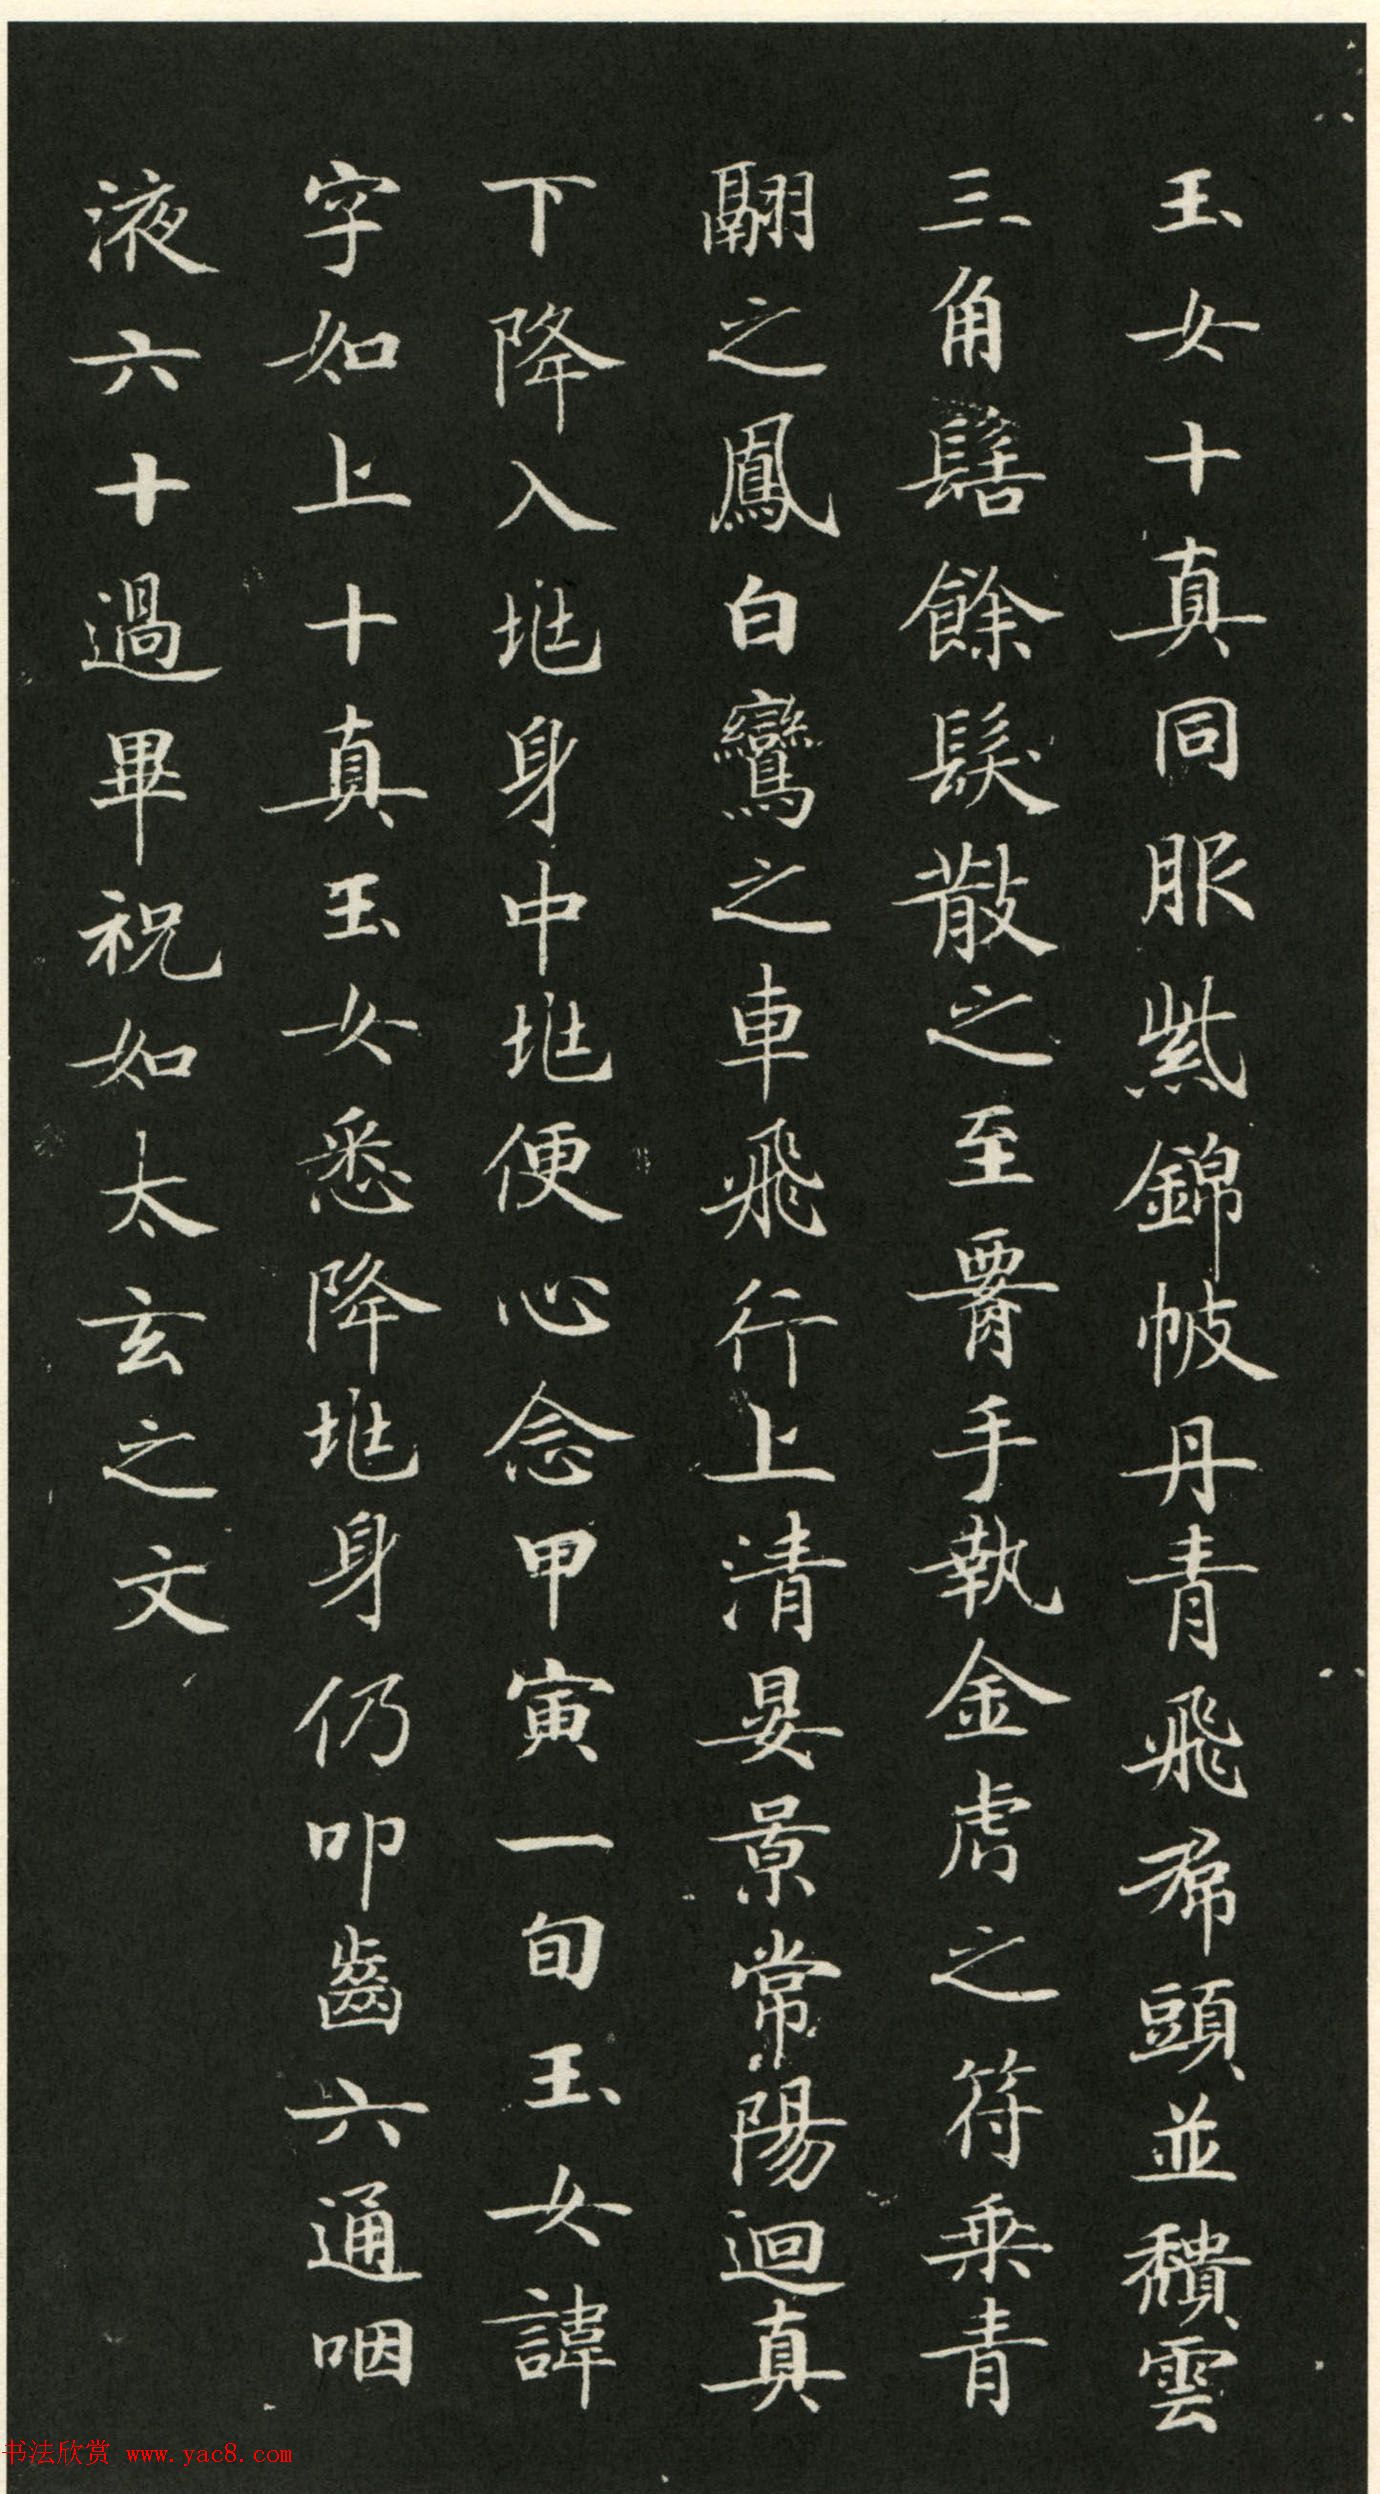 玉女十真同服紫錦帔丹青飛帬頭並穨雲
三角髻餘髮散之至腰手執金虎之符乗青
翮之鳳白鸞之車飛行上清晏景常陽迴真
下降入地身中地便心念甲寅一旬玉女諱
字如上十真玉女悉降地身仍叩齒六通咽
液六十過畢祝如太玄之文
书法欣赏 www.yac8.com